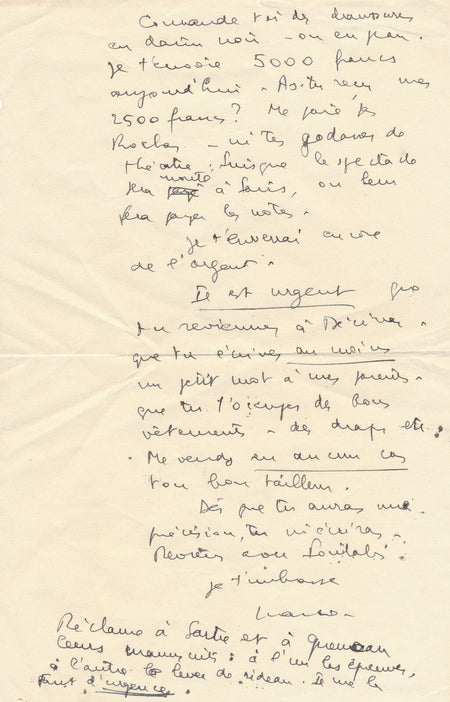 Commande toi des chaussures
en daim noir - ou en peau.
Je t'envoie 5000 francs
aujourd'hui. As-tu reçu mes
2500 francs? Ne paie pas
Rochas - ni tes godasses de
théâtre; puisque le spectacle
sera monté à Paris, on leur
fera payer les notes.
Je t'enverrai encore
de l'argent.
Il est urgent que
tu reviennes à
que tu écrives au moins
un petit mot à mes parents.
que tu t'occupes de tous
vêtements - des draps etc.
Ne vends en aucun cas
ton bon tailleur.
Dès que tu auras une
précision, tu m'écriras.
avec
Je t'embrasse
Réclame à Sartre et à
leurs manuscrits: à l'un les épreuves,
à l'autre le lever de rideau. Il me les
faut d'urgence.